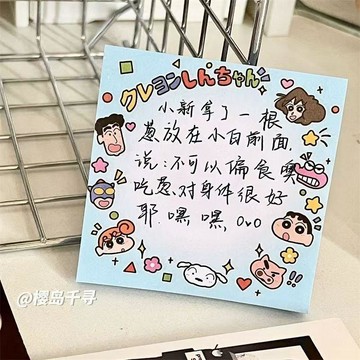 クレヨンしんちゃん
小新拿了一根
葱放在小白前面.
说:不可以偏食奥
吃葱.对身体很好
耶.嘿嘿 0v0
@樱岛千寻